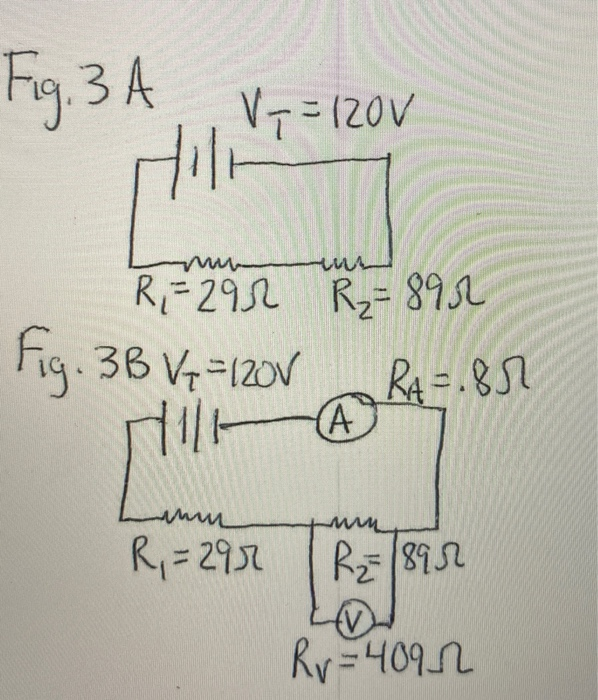 Fig. 3 A
V_T = 120V
R₁ = 29Ω R₂ = 89Ω
Fig. 3B V_T = 120V R_A = .8Ω
A
R₁ = 29Ω R₂ = 89Ω
V
R_V = 409Ω